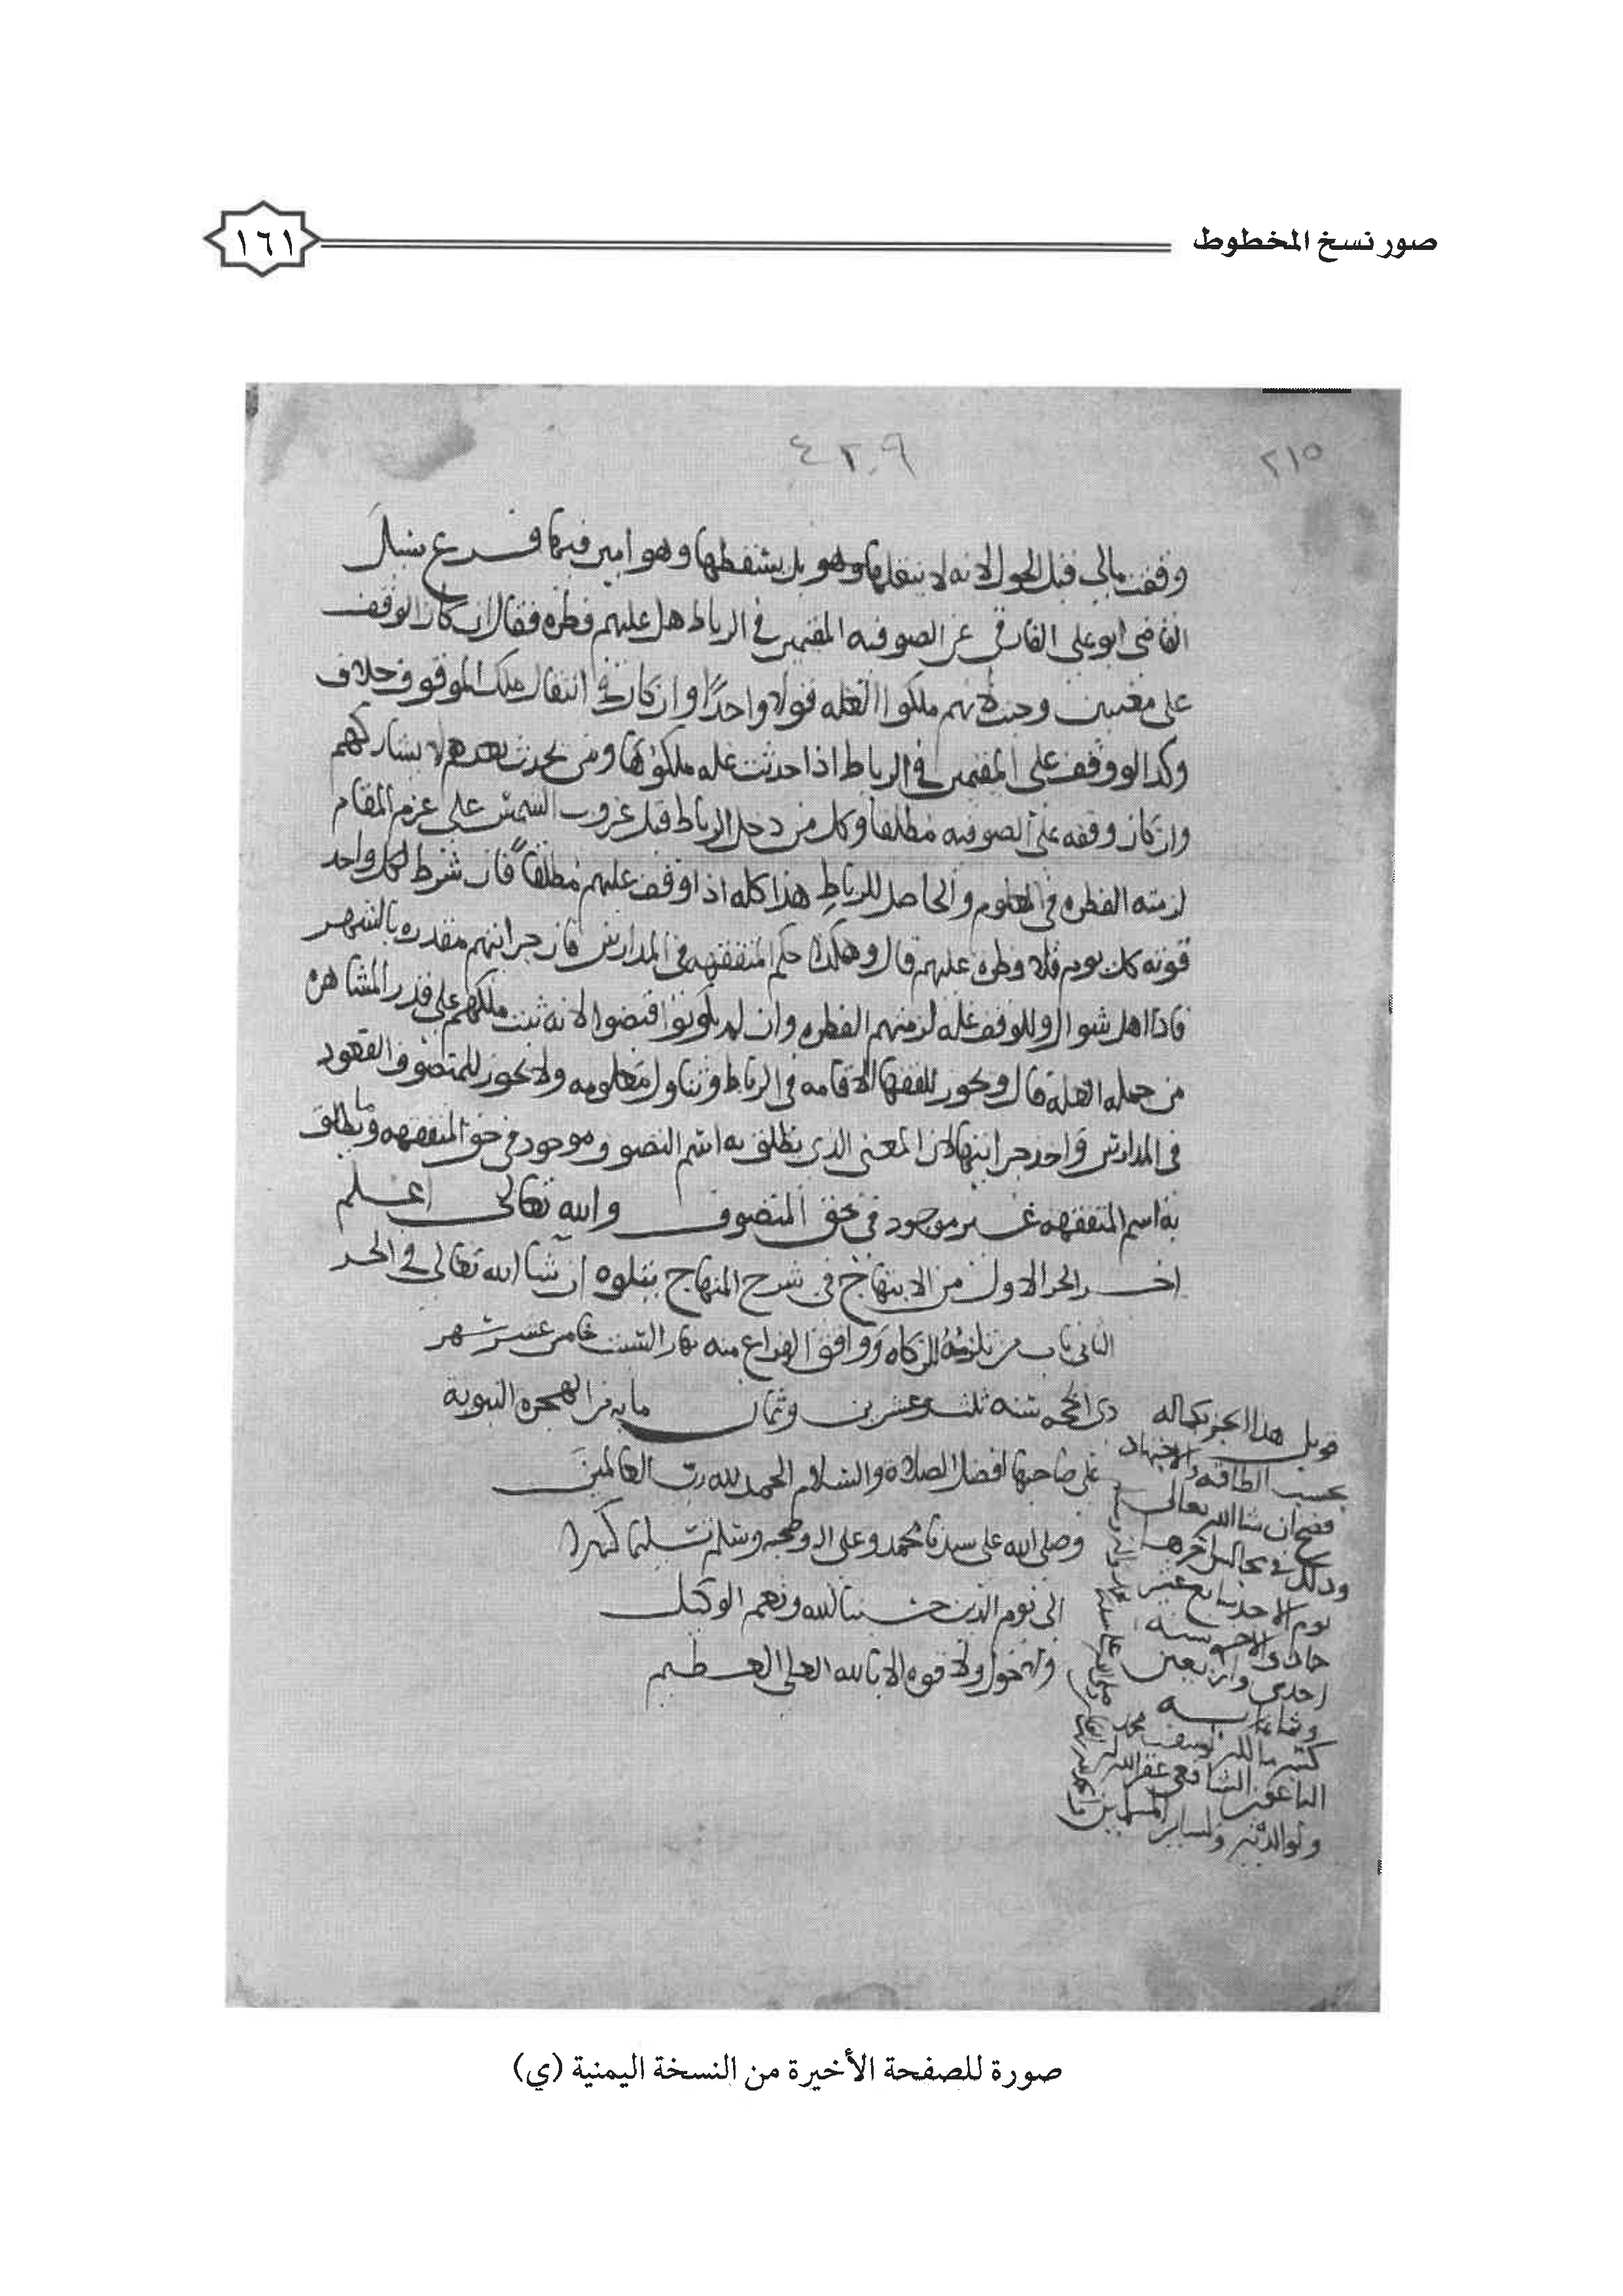 صور نسخ المخطوط
١٦١
٢١٥
٤٢٠٩
القاضي ابو علي الفارقي عن الصوفيه المقيمين في الرباط هل عليهم فطره فقال ان كان الوقف
على معينين وجبت لانهم ملكوا الغله قولا واحدًا وان كان في انتقال ملك الموقوف خلاف
وكذا لو وقف على المقيمين في الرباط اذا حدثت غله ملكوها ومن يحدث بعدهم لا يشاركهم
وان كان وقفه على الصوفيه مطلقا وكل من دخل الرباط قبل غروب الشمس على عزم المقام
لزمته الفطره في المعلوم والحاصل للرباط هذا كله اذا وقف عليهم مطلقاً فان شرط لكل واحد
قوته كل يوم فلا فطره عليهم قال وهكذا حكم المتفقهه في المدارس فان جرايتهم مقدره بالشهر
فاذا اهل شوال وللوقف غله لزمتهم الفطره وان لم يكونوا قبضوا لانه ثبت ملكهم على قدر المشاهره
من جمله الغله قال ويجوز للفقها الاقامه في الرباط وتناول معلومه ولا يجوز للمتصوف القعود
في المدارس واخذ جرايتها لان المعنى الذي يطلق به اسم التصوف موجود في حق المتفقهه وما يطلق
به اسم المتفقهه غير موجود في حق المتصوف والله تعالى اعلم
اخر الجز الاول من الابتهاج في شرح المنهاج يتلوه ان شا الله تعالى في الجز
الثاني باب من تلزمه الزكاه ووافق الفراغ منه نهار السبت خامس عشر شهر
ذي الحجه سنه ثلث وعشرين وثمان مايه من الهجره النبوية
على صاحبها افضل الصلاة والسلام الحمد لله رب العالمين
وصلى الله على سيدنا محمد وعلى اله وصحبه وسلم تسليما كثيرا
الى يوم الدين حسبنا الله ونعم الوكيل
ولا حول ولا قوه الا بالله العلي العظيم
قوبل هذا الجز بكماله
بحسب الطاقه والاجتهاد
فصح ان شا الله تعالى
وذلك في مجالس اخرها
يوم الاحد سابع عشر
جمادى الاخر سنه
احدى واربعين
وثمانمايه
الشافعي غفر الله له
ولوالديه ولساير المسلمين
صورة للصفحة الأخيرة من النسخة اليمنية (ي)